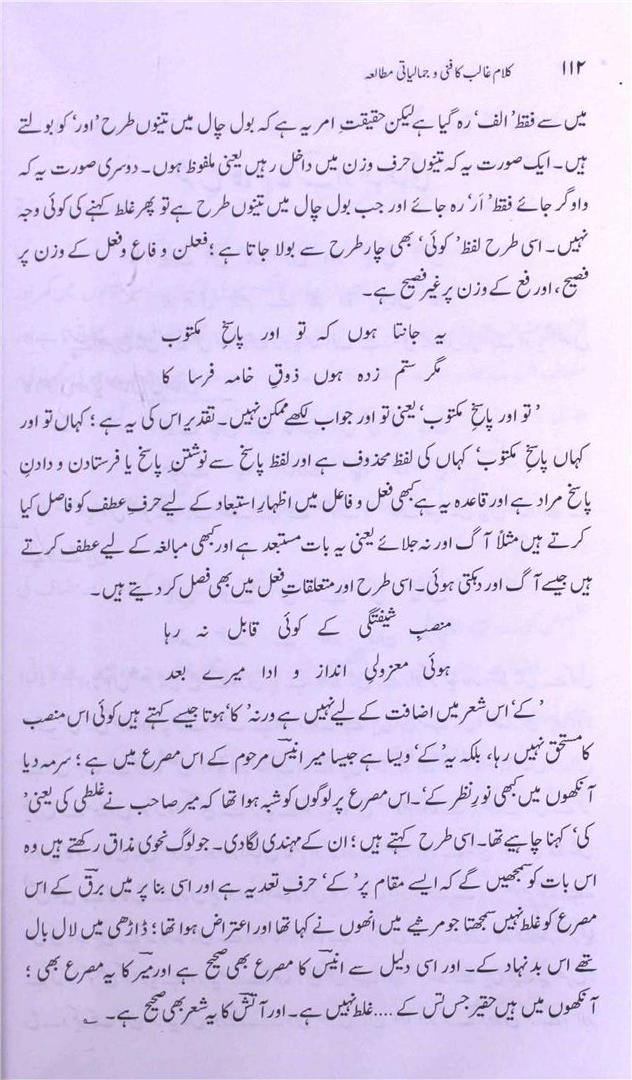 ۱۱۲ کلام غالب کا فنی و جمالیاتی مطالعہ
میں سے فقط ’الف‘ رہ گیا ہے لیکن حقیقتِ امر یہ ہے کہ بول چال میں تینوں طرح ’اور‘ کو بولتے
ہیں۔ ایک صورت یہ کہ تینوں حرف وزن میں داخل رہیں یعنی ملفوظ ہوں۔ دوسری صورت یہ کہ
واو گر جائے فقط ’اَر‘ رہ جائے اور جب بول چال میں تینوں طرح ہے تو پھر غلط کہنے کی کوئی وجہ
نہیں۔ اسی طرح لفظ ’کوئی‘ بھی چار طرح سے بولا جاتا ہے؛ فعلن و فاع و فعل کے وزن پر
فصیح، اور فع کے وزن پر غیر فصیح ہے۔
یہ جانتا ہوں کہ تو اور پاسخِ مکتوب
مگر ستم زدہ ہوں ذوقِ خامہ فرسا کا
’تو اور پاسخِ مکتوب‘ یعنی تو اور جواب لکھے ممکن نہیں۔ تقدیر اس کی یہ ہے؛ کہاں تو اور
کہاں پاسخِ مکتوب‘ کہاں کی لفظ محذوف ہے اور لفظ پاسخ سے نوشتنِ پاسخ یا فرستادن و دادنِ
پاسخ مراد ہے اور قاعدہ یہ ہے کبھی فعل و فاعل میں اظہارِ استبعاد کے لیے حرفِ عطف کو فاصل کیا
کرتے ہیں مثلاً آگ اور نہ جلائے یعنی یہ بات مستبعد ہے اور کبھی مبالغہ کے لیے عطف کرتے
ہیں جیسے آگ اور دہکتی ہوئی۔ اسی طرح اور متعلقاتِ فعل میں بھی فصل کر دیتے ہیں۔
منصبِ شیفتگی کے کوئی قابل نہ رہا
ہوئی معزولیِ انداز و ادا میرے بعد
’کے‘ اس شعر میں اضافت کے لیے نہیں ہے ورنہ ’کا‘ ہوتا جیسے کہتے ہیں کوئی اس منصب
کا مستحق نہیں رہا، بلکہ یہ ’کے‘ ویسا ہے جیسا میر انیسؔ مرحوم کے اس مصرع میں ہے؛ سرمہ دیا
آنکھوں میں کبھی نورِ نظر کے‘۔ اس مصرع پر لوگوں کو شبہ ہوا تھا کہ میر صاحب نے غلطی کی یعنی ’
کی‘ کہنا چاہیے تھا۔ اسی طرح کہتے ہیں؛ ان کے مہندی لگا دی۔ جو لوگ نحوی مذاق رکھتے ہیں وہ
اس بات کو سمجھیں گے کہ ایسے مقام پر ’کے‘ حرفِ تعدیہ ہے اور اسی بنا پر میں برقؔ کے اس
مصرع کو غلط نہیں سمجھتا جو مرثیے میں انھوں نے کہا تھا اور اعتراض ہوا تھا؛ ڈاڑھی میں لال بال
تھے اس بد نہاد کے۔ اور اسی دلیل سے انیسؔ کا مصرع بھی صحیح ہے اور میرؔ کا یہ مصرع بھی؛
آنکھوں میں ہیں حقیر جس تس کے .... غلط نہیں ہے۔ اور آتشؔ کا یہ شعر بھی صحیح ہے۔ ؎